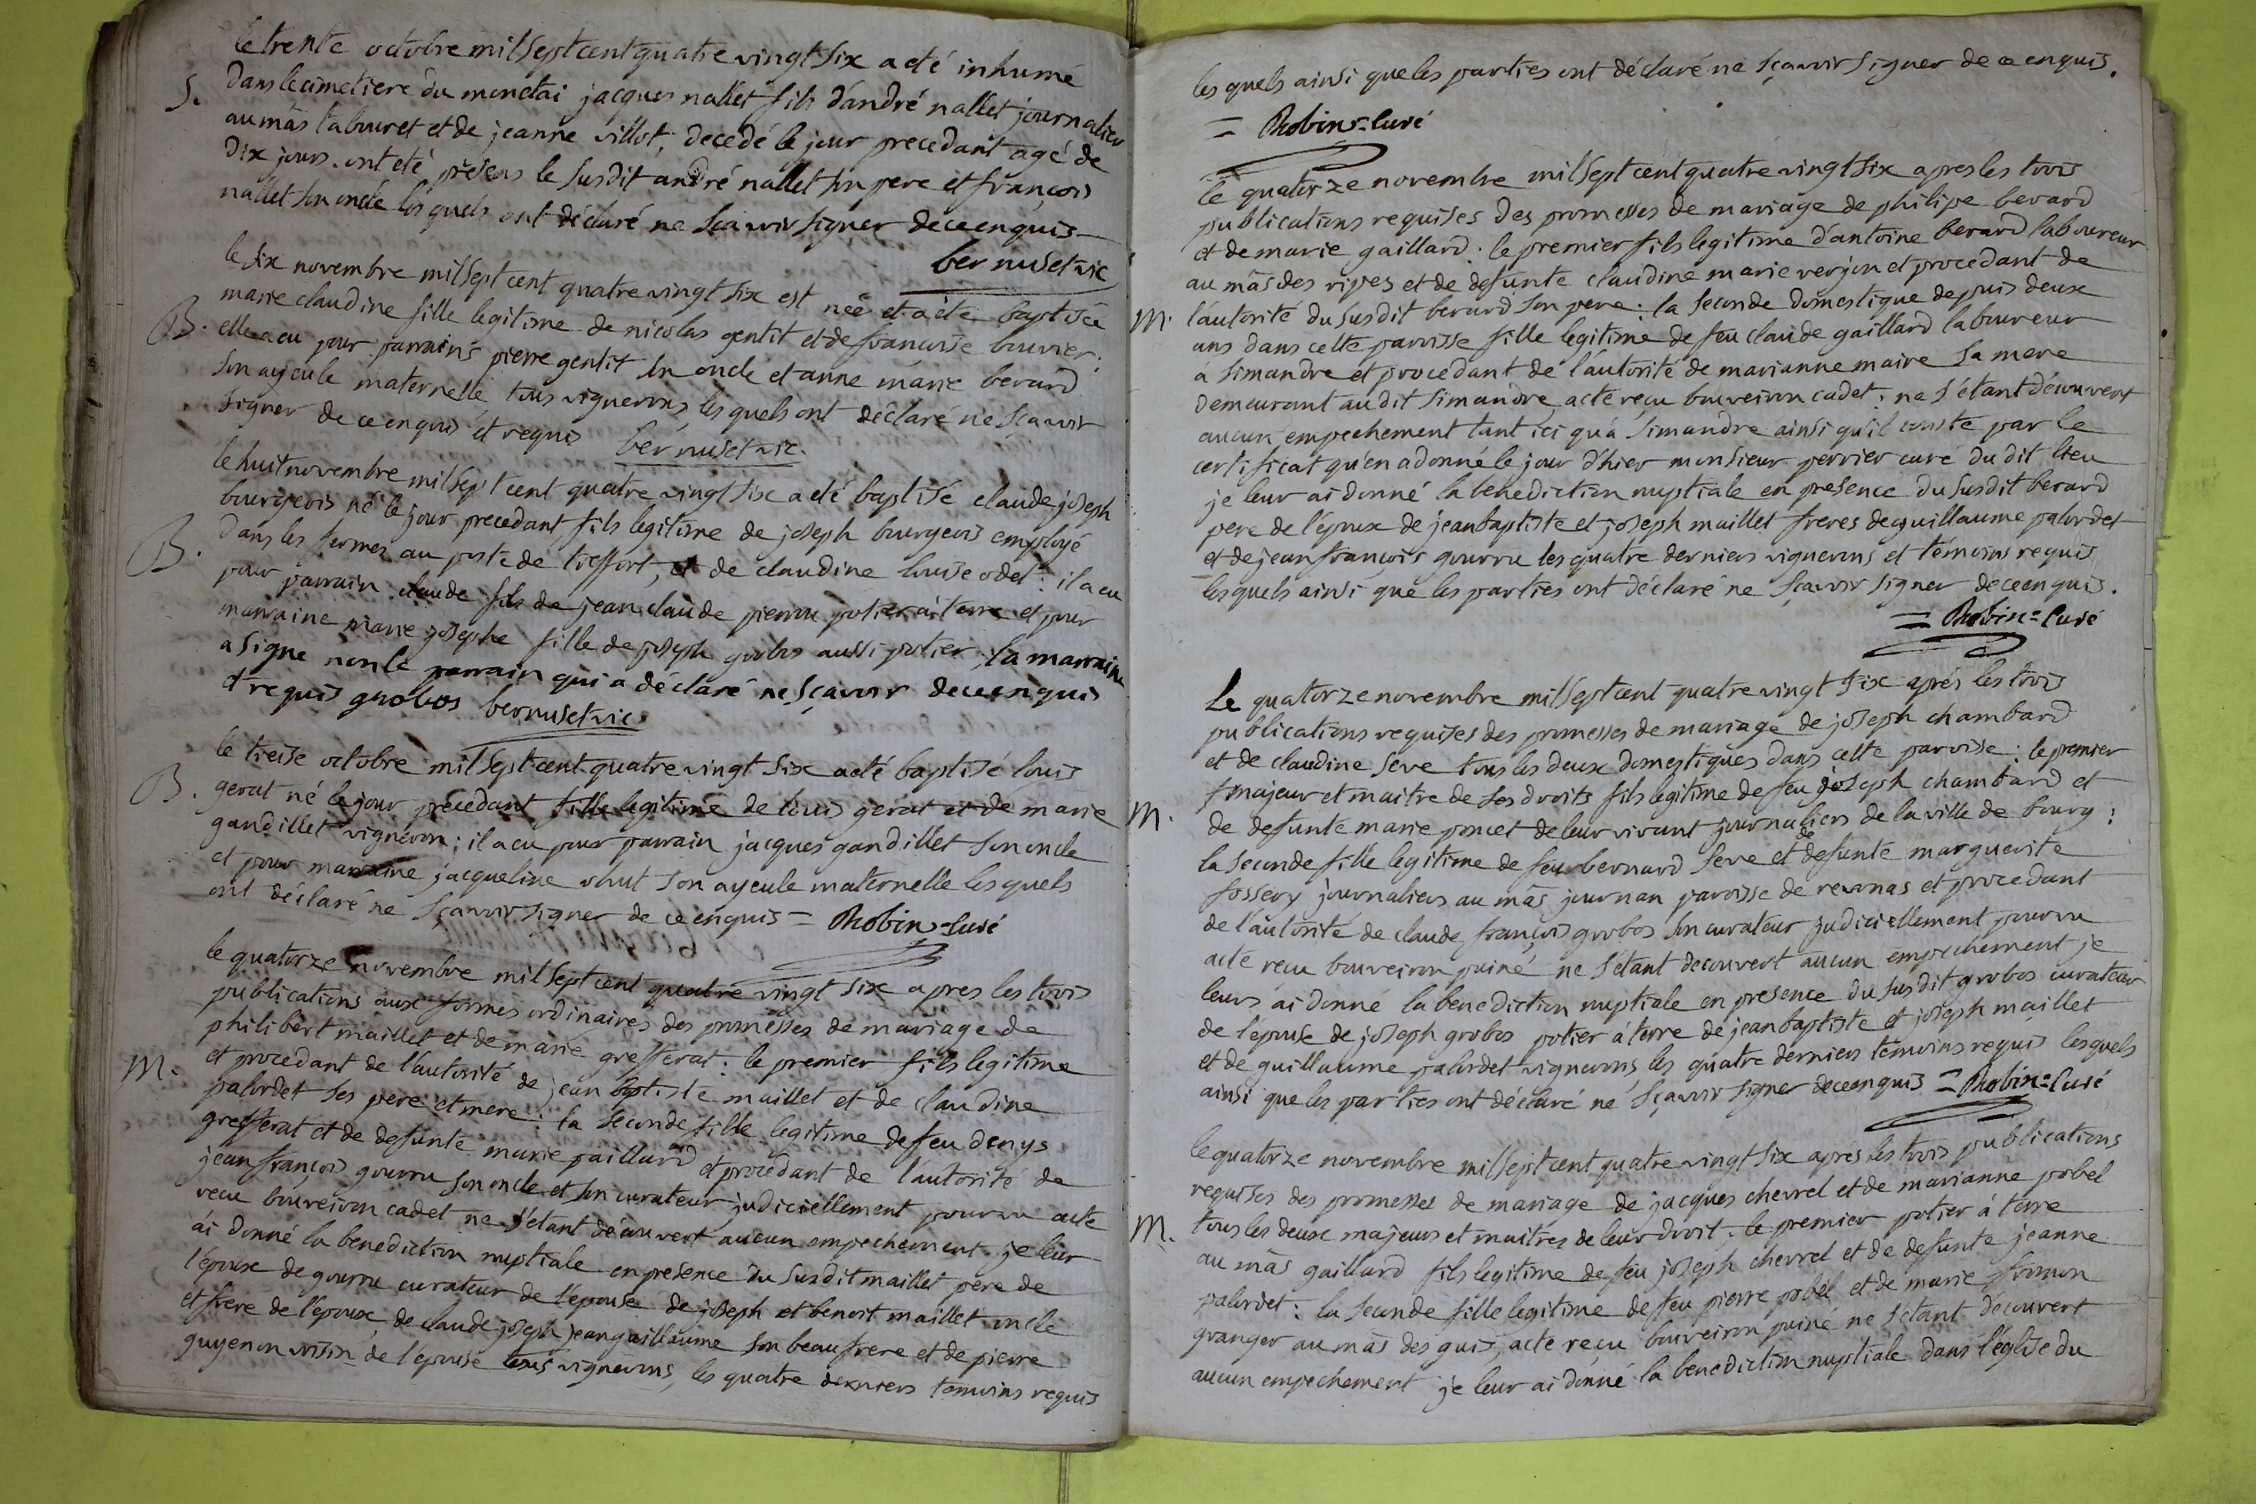 le trente octobre mil sept cent quatre vingt six a été inhumé
S. dans le cimetiere du monetai jacques nallet fils d'andré nallet journalier
au mâs tabouret et de jeanne villot, decedé le jour precedant agé de
dix jours. ont eté présens le susdit andré nallet son pere et françois
nallet son oncle lesquels ont déclaré ne sçavoir signer de ce enquis
bernuset vic
le six novembre mil sept cent quatre vingt six est née et a été baptisée
B. marie claudine fille legitime de nicolas gentit et de françoise bouvier:
elle a eu pour parrains pierre gentit son oncle et anne marie berard
son ayeule maternelle tous vignerons, lesquels ont déclaré ne sçavoir
signer de ce enquis et requis bernuset vic.
le huit novembre mil sept cent quatre vingt six a été baptisé claude joseph
bourgeois né le jour precedant fils legitime de joseph bourgeois employé
B. dans les fermes au poste de treffort, et de claudine louise odet: il a eu
pour parrain claude fils de jean claude pierru potier à terre et pour
marraine marie josephe fille de joseph grobos aussi potier. la marraine
a signé non le parrain qui a déclaré ne sçavoir de ce enquis
et requis grobos bernuset vic
le treise octobre mil sept cent quatre vingt six a été baptisé louis
B. gerat né le jour précédant fille legitime de louis gerat et de marie
gandillet vigneron; il a eu pour parrain jacques gandillet son oncle
et pour marraine jacqueline chut son ayeule maternelle lesquels
ont déclaré ne sçavoir signer de ce enquis = Robin=curé
le quatorze novembre mil sept cent quatre vingt six apres les trois
publications aux formes ordinaires des promesses de mariage de
philibert maillet et de marie grefferat: le premier fils legitime
M. et procedant de l'autorité de jean baptiste maillet et de claudine
palordet ses pere et mere: la seconde fille legitime de feu denys
grefferat et de defunte marie paillard et procedant de l'autorité de
jean françois gourru son oncle et son curateur judiciellement pourvu acte
recu bouveiron cadet ne s'etant découvert aucun empechement je leur
ai donné la benediction nuptiale en presence du susdit maillet pere de
l'époux de gourru curateur de l'epouse de joseph et benoit maillet oncle
et frere de l'époux, de claude joseph jeanguillaume son beaufrere et de pierre
guyenon voisin de l'epouse tous vignerons, les quatre derniers temoins requis
lesquels ainsi que les parties ont déclaré ne sçavoir signer de ce enquis.
= Robin=curé
le quatorze novembre mil sept cent quatre vingt six apres les trois
publications requises des promesses de mariage de philipe berard
et de marie gaillard: le premier fils legitime d'antoine berard laboureur
au mâs des ripes et de defunte claudine marie verjon et procedant de
M. l'autorité du susdit berard son pere: la seconde domestique depuis deux
ans dans cette paroisse fille legitime de feu claude gaillard laboureur
à simandre et procedant de l'autorité de marianne maire sa mere
demeurant au dit simandre, acte reçu bouveiron cadet: ne s'étant découvert
aucun empechement tant ici qu'à simandre ainsi qu'il conste par le
certificat qu'en a donné le jour d'hier monsieur perrier curé du dit lieu
je leur ai donné la benediction nuptiale en presence du susdit berard
pere de l'époux de jean baptiste et joseph maillet freres de guillaume palordet
et de jean françois gourru les quatre derniers vignerons et témoins requis
lesquels ainsi que les parties ont déclaré ne sçavoir signer de ce enquis.
= Robin=curé
Le quatorze novembre mil sept cent quatre vingt six aprés les trois
publications requises des promesses de mariage de joseph chambard
et de claudine seve tous les deux domestiques dans cette paroisse: le premier
majeur et maitre de ses droits fils legitime de feu joseph chambard et
M. de defunte marie poncet de leur vivant journaliers de la ville de bourg:
la seconde fille legitime de feu bernard seve et de defunte marguerite
fossery journaliers au mâs journan paroisse de revonas et procedant
de l'autorité de claude françois grobos son curateur judiciellement pourvu
acte reçu bouveiron puiné ne s'étant decouvert aucun empechement je
leurs ai donné la benediction nuptiale en presence du susdit grobos curateur
de l'épouse de joseph grobos potier à terre de jean baptiste et joseph maillet
et de guillaume palordet vignerons les quatre derniers temoins requis lesquels
ainsi que les parties ont déclaré ne sçavoir signer de ce enquis = Robin=curé
le quatorze novembre mil sept cent quatre vingt six aprés les trois publications
requises des promesses de mariage de jacques chevrel et de marianne pobel
M. tous les deux majeurs et maitres de leur droit: le premier potier à terre
au mâs gaillard fils legitime de feu joseph chevrel et de defunte jeanne
palordet: la seconde fille legitime de feu pierre pobel et de marie fromon
granger au mâs des guis, acte reçu bouveiron puiné ne s'étant découvert
aucun empechement je leur ai donné la benediction nuptiale dans l'église du